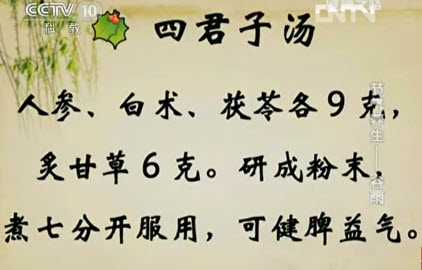 CCTV 10
科教
CNTV
四君子汤
人参、白术、茯苓各9克，
炙甘草6克。研成粉末，
煮七分开服用，可健脾益气。